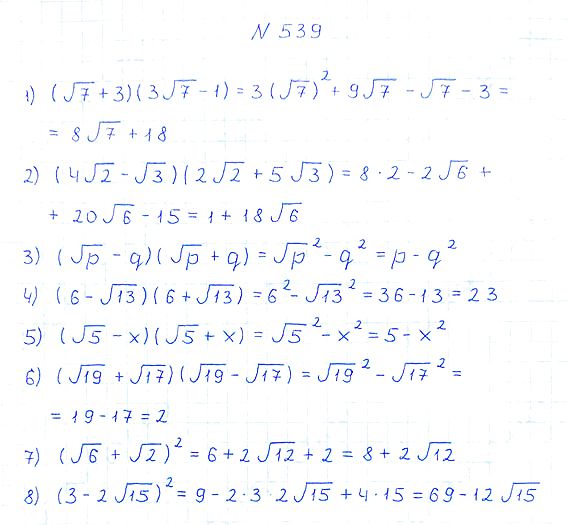 N 539
1) (√7 + 3)(3√7 - 1) = 3(√7)² + 9√7 - √7 - 3 =
= 8√7 + 18
2) (4√2 - √3)(2√2 + 5√3) = 8 · 2 - 2√6 +
+ 20√6 - 15 = 1 + 18√6
3) (√p - q)(√p + q) = √p² - q² = p - q²
4) (6 - √13)(6 + √13) = 6² - √13² = 36 - 13 = 23
5) (√5 - x)(√5 + x) = √5² - x² = 5 - x²
6) (√19 + √17)(√19 - √17) = √19² - √17² =
= 19 - 17 = 2
7) (√6 + √2)² = 6 + 2√12 + 2 = 8 + 2√12
8) (3 - 2√15)² = 9 - 2 · 3 · 2√15 + 4 · 15 = 69 - 12√15